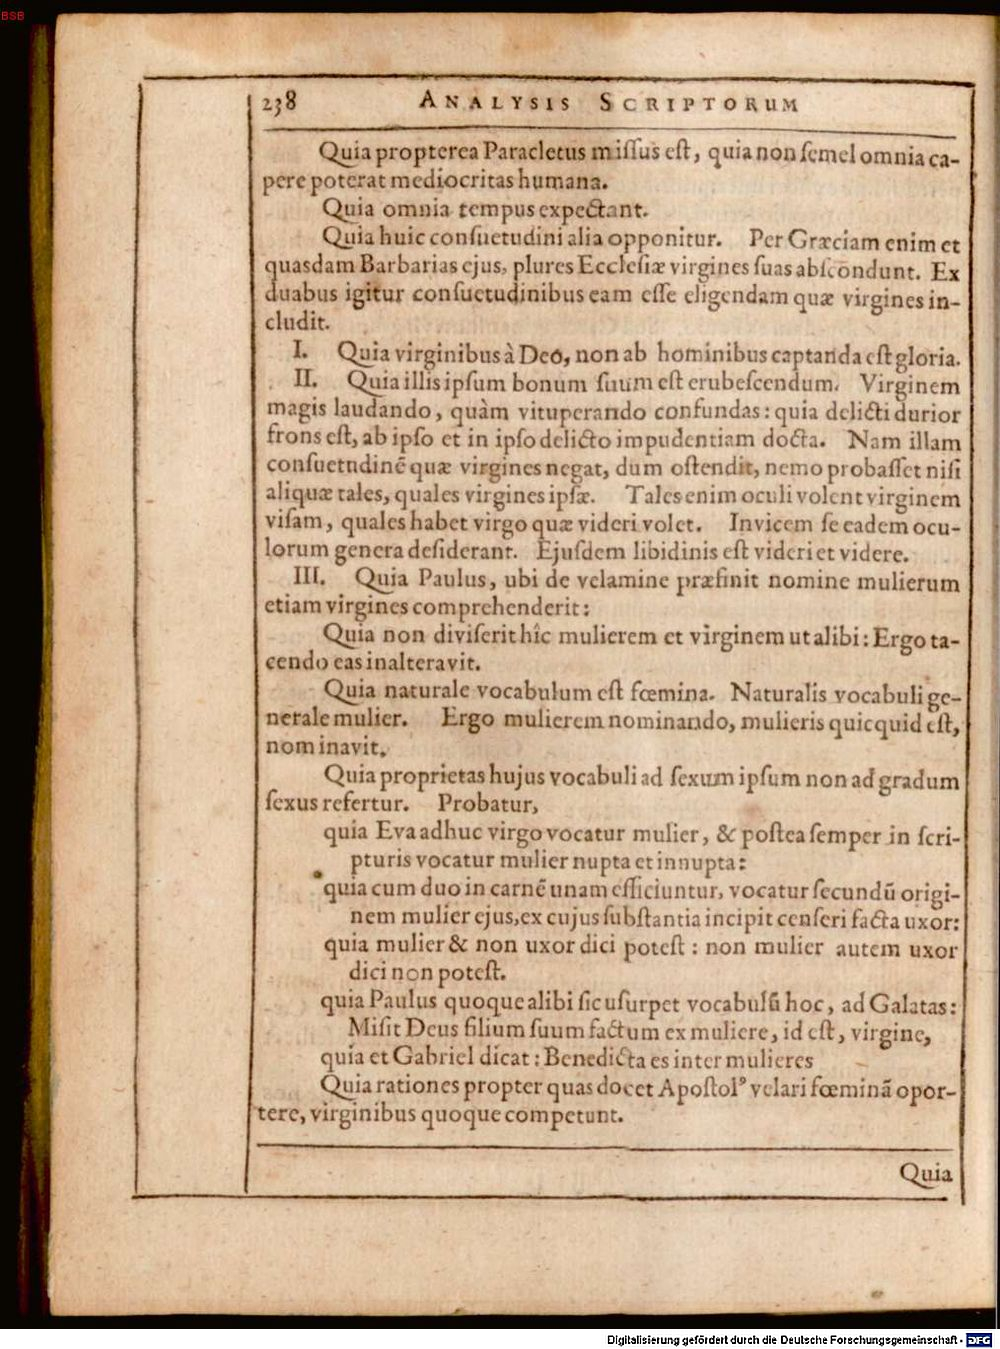 BSB
238 ANALYSIS SCRIPTORUM
Quia propterea Paracletus miſſus eſt, quia non ſemel omnia ca-
pere poterat mediocritas humana.
Quia omnia tempus expectant.
Quia huic conſuetudini alia opponitur. Per Græciam enim et
quasdam Barbarias ejus, plures Eccleſiæ virgines ſuas abſcondunt. Ex
duabus igitur conſuetudinibus eam eſſe eligendam quæ virgines in-
cludit.
I. Quia virginibus à Deo, non ab hominibus captanda eſt gloria.
II. Quia illis ipſum bonum ſuum eſt erubeſcendum. Virginem
magis laudando, quàm vituperando confundas: quia delicti durior
frons eſt, ab ipſo et in ipſo delicto impudentiam docta. Nam illam
conſuetudinẽ quæ virgines negat, dum oſtendit, nemo probaſſet niſi
aliquæ tales, quales virgines ipſæ. Tales enim oculi volent virginem
viſam, quales habet virgo quæ videri volet. Invicem ſe eadem ocu-
lorum genera deſiderant. Ejuſdem libidinis eſt videri et videre.
III. Quia Paulus, ubi de velamine præfinit nomine mulierum
etiam virgines comprehenderit:
Quia non diviſerit hîc mulierem et virginem ut alibi: Ergo ta-
cendo eas inalteravit.
Quia naturale vocabulum eſt fœmina. Naturalis vocabuli ge-
nerale mulier. Ergo mulierem nominando, mulieris quicquid eſt,
nominavit.
Quia proprietas hujus vocabuli ad ſexum ipſum non ad gradum
ſexus refertur. Probatur,
quia Eva adhuc virgo vocatur mulier, & poſtea ſemper in ſcri-
pturis vocatur mulier nupta et innupta:
quia cum duo in carnẽ unam efficiuntur, vocatur ſecundũ origi-
nem mulier ejus, ex cujus ſubſtantia incipit cenſeri facta uxor:
quia mulier & non uxor dici poteſt: non mulier autem uxor
dici non poteſt.
quia Paulus quoque alibi ſic uſurpet vocabulũ hoc, ad Galatas:
Miſit Deus filium ſuum factum ex muliere, id eſt, virgine,
quia et Gabriel dicat: Benedicta es inter mulieres
Quia rationes propter quas docet Apoſtolꝰ velari fœminã opor-
tere, virginibus quoque competunt.
Quia
Digitalisierung gefördert durch die Deutsche Forschungsgemeinschaft - DFG